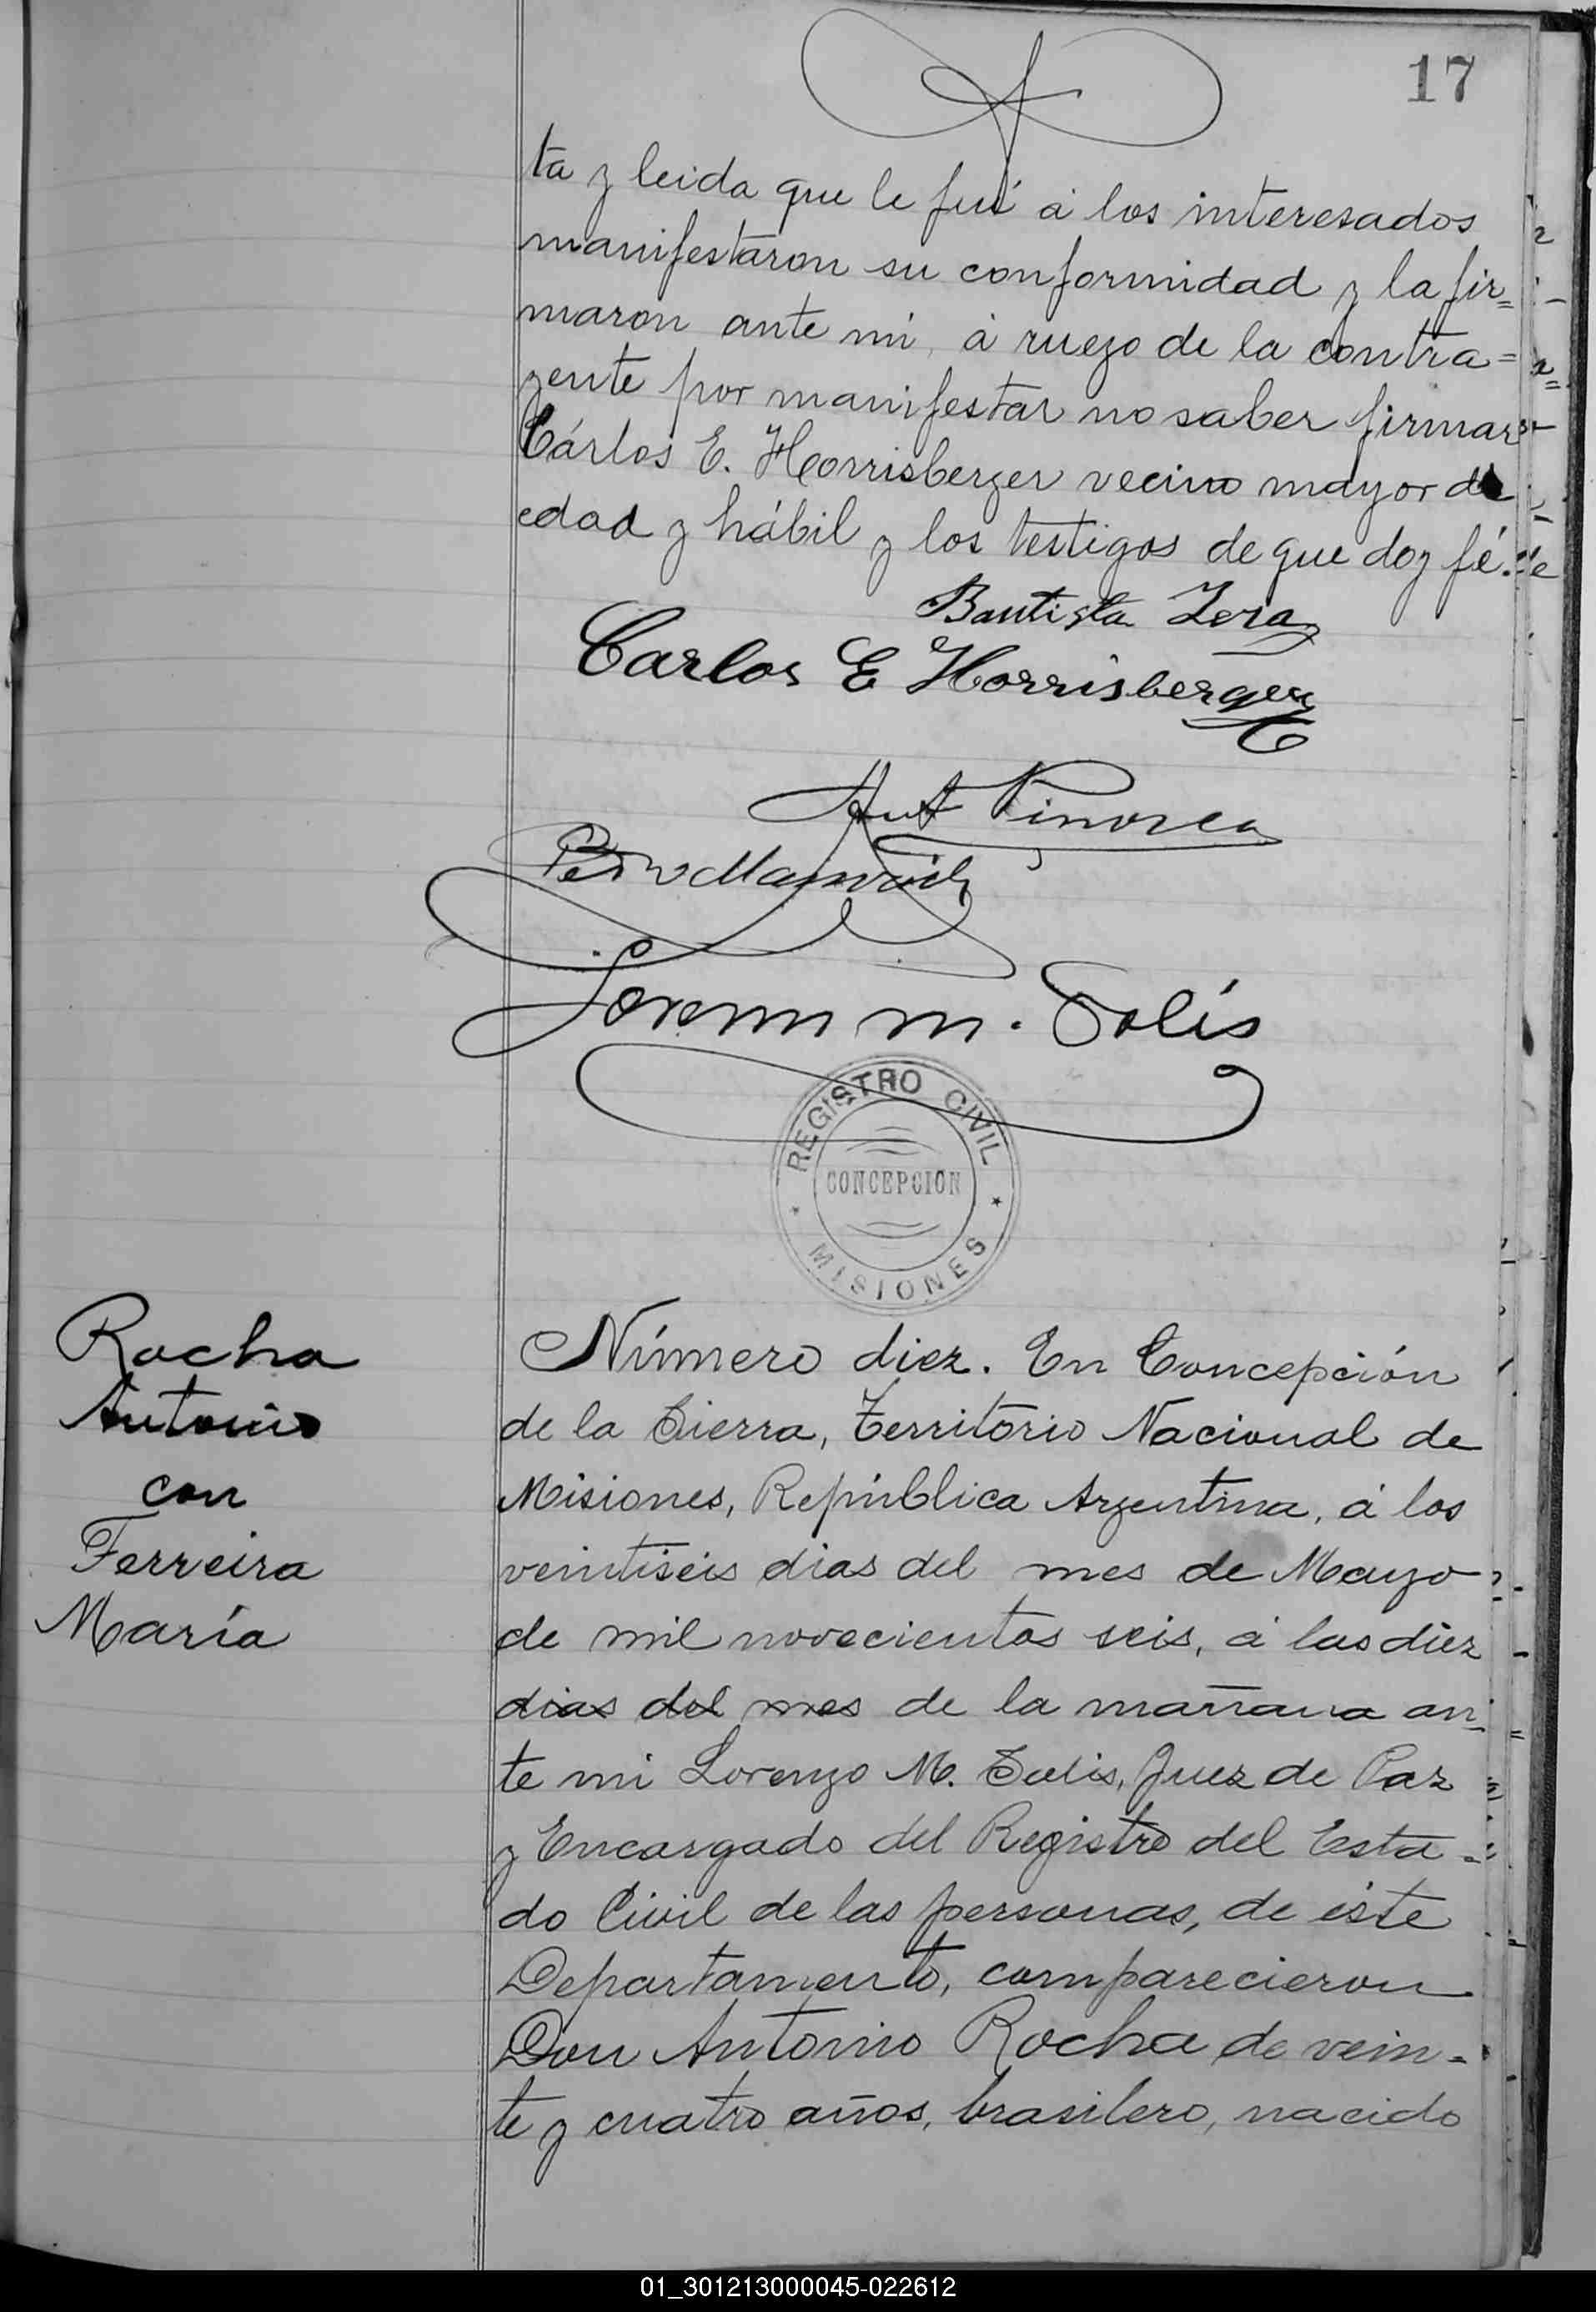 17
ta y leida que le fué á los interesados
manifestaron su conformidad y la fir=
maron ante mi, á ruego de la contra=
yente por manifestar no saber firmar
Cárlos E. Horrisberger vecino mayor de
edad y hábil y los testigos de que doy fé.
Bautista
Carlos E Horrisberger
Ant
Pedro
Lorenzo M. Solís
REGISTRO CIVIL
CONCEPCION
MISIONES
Rocha
Antonio
con
Ferreira
María
Número diez. En Concepción
de la Sierra, Territorio Nacional de
Misiones, República Argentina, á los
veintiseis dias del mes de Mayo
de mil novecientos seis, á las diez
dias del mes de la mañana an-
te mi Lorenzo M. Solis, Juez de Paz
y Encargado del Registro del Esta-
do Civil de las personas, de éste
Departamento, comparecieron
Don Antonio Rocha de vein-
te y cuatro años, brasilero, nacido
01_301213000045-022612